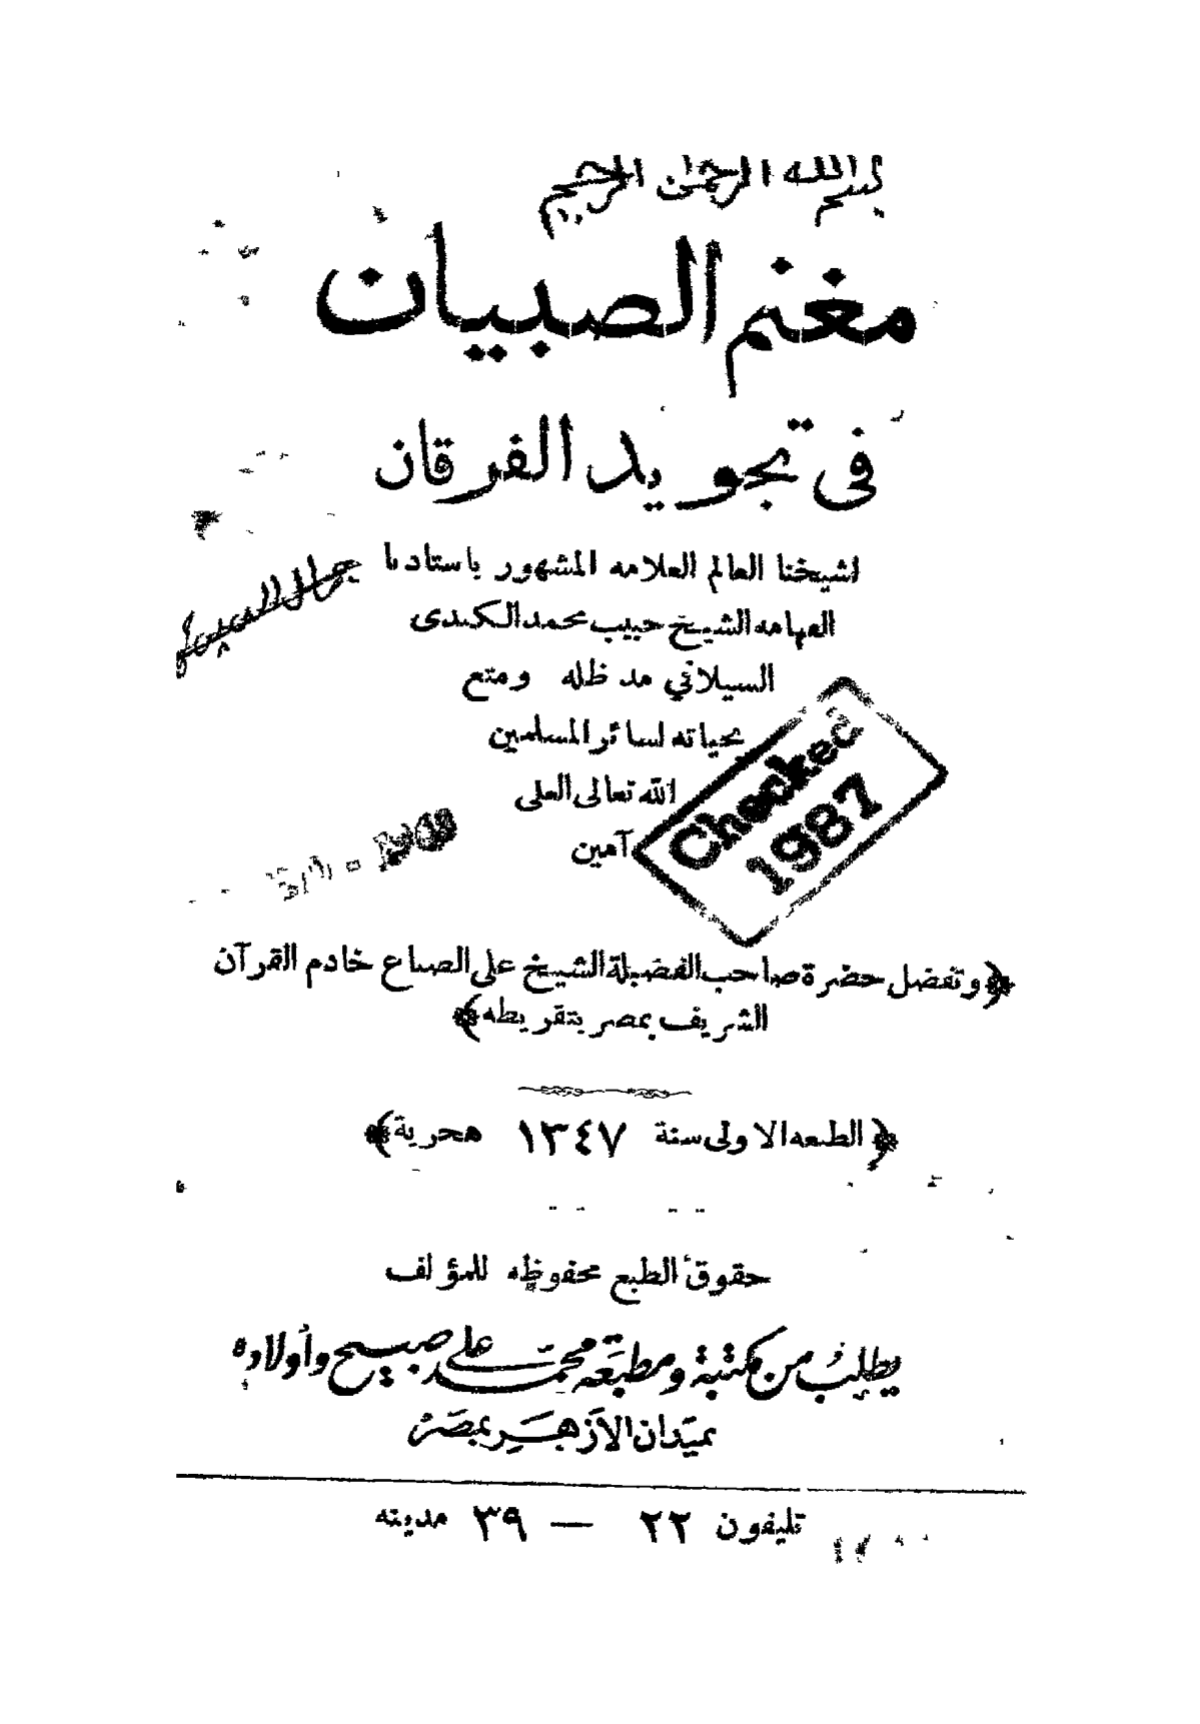 بسم الله الرحمن الرحيم
مغنم الصبيان
فى تجويد الفرقان
لشيخنا العالم العلامه المشهور باستادنا
الفهامه الشيخ حبيب محمد الكندى
السيلاني مد ظله ومتع
بحياته لسائر المسلمين
الله تعالى العلى
آمين
Checked
1987
﴿وتفضل حضرة صاحب الفضيلة الشيخ على الضباع خادم القرآن
الشريف بمصر بتقريظه﴾
﴿الطبعه الاولى سنة ١٣٤٧ هجرية﴾
حقوق الطبع محفوظه للمؤلف
يطلب من مكتبة ومطبعه محمد على صبيح وأولاده
بميدان الأزهر بمصر
تليفون ٢٢ — ٣٩ مدينه